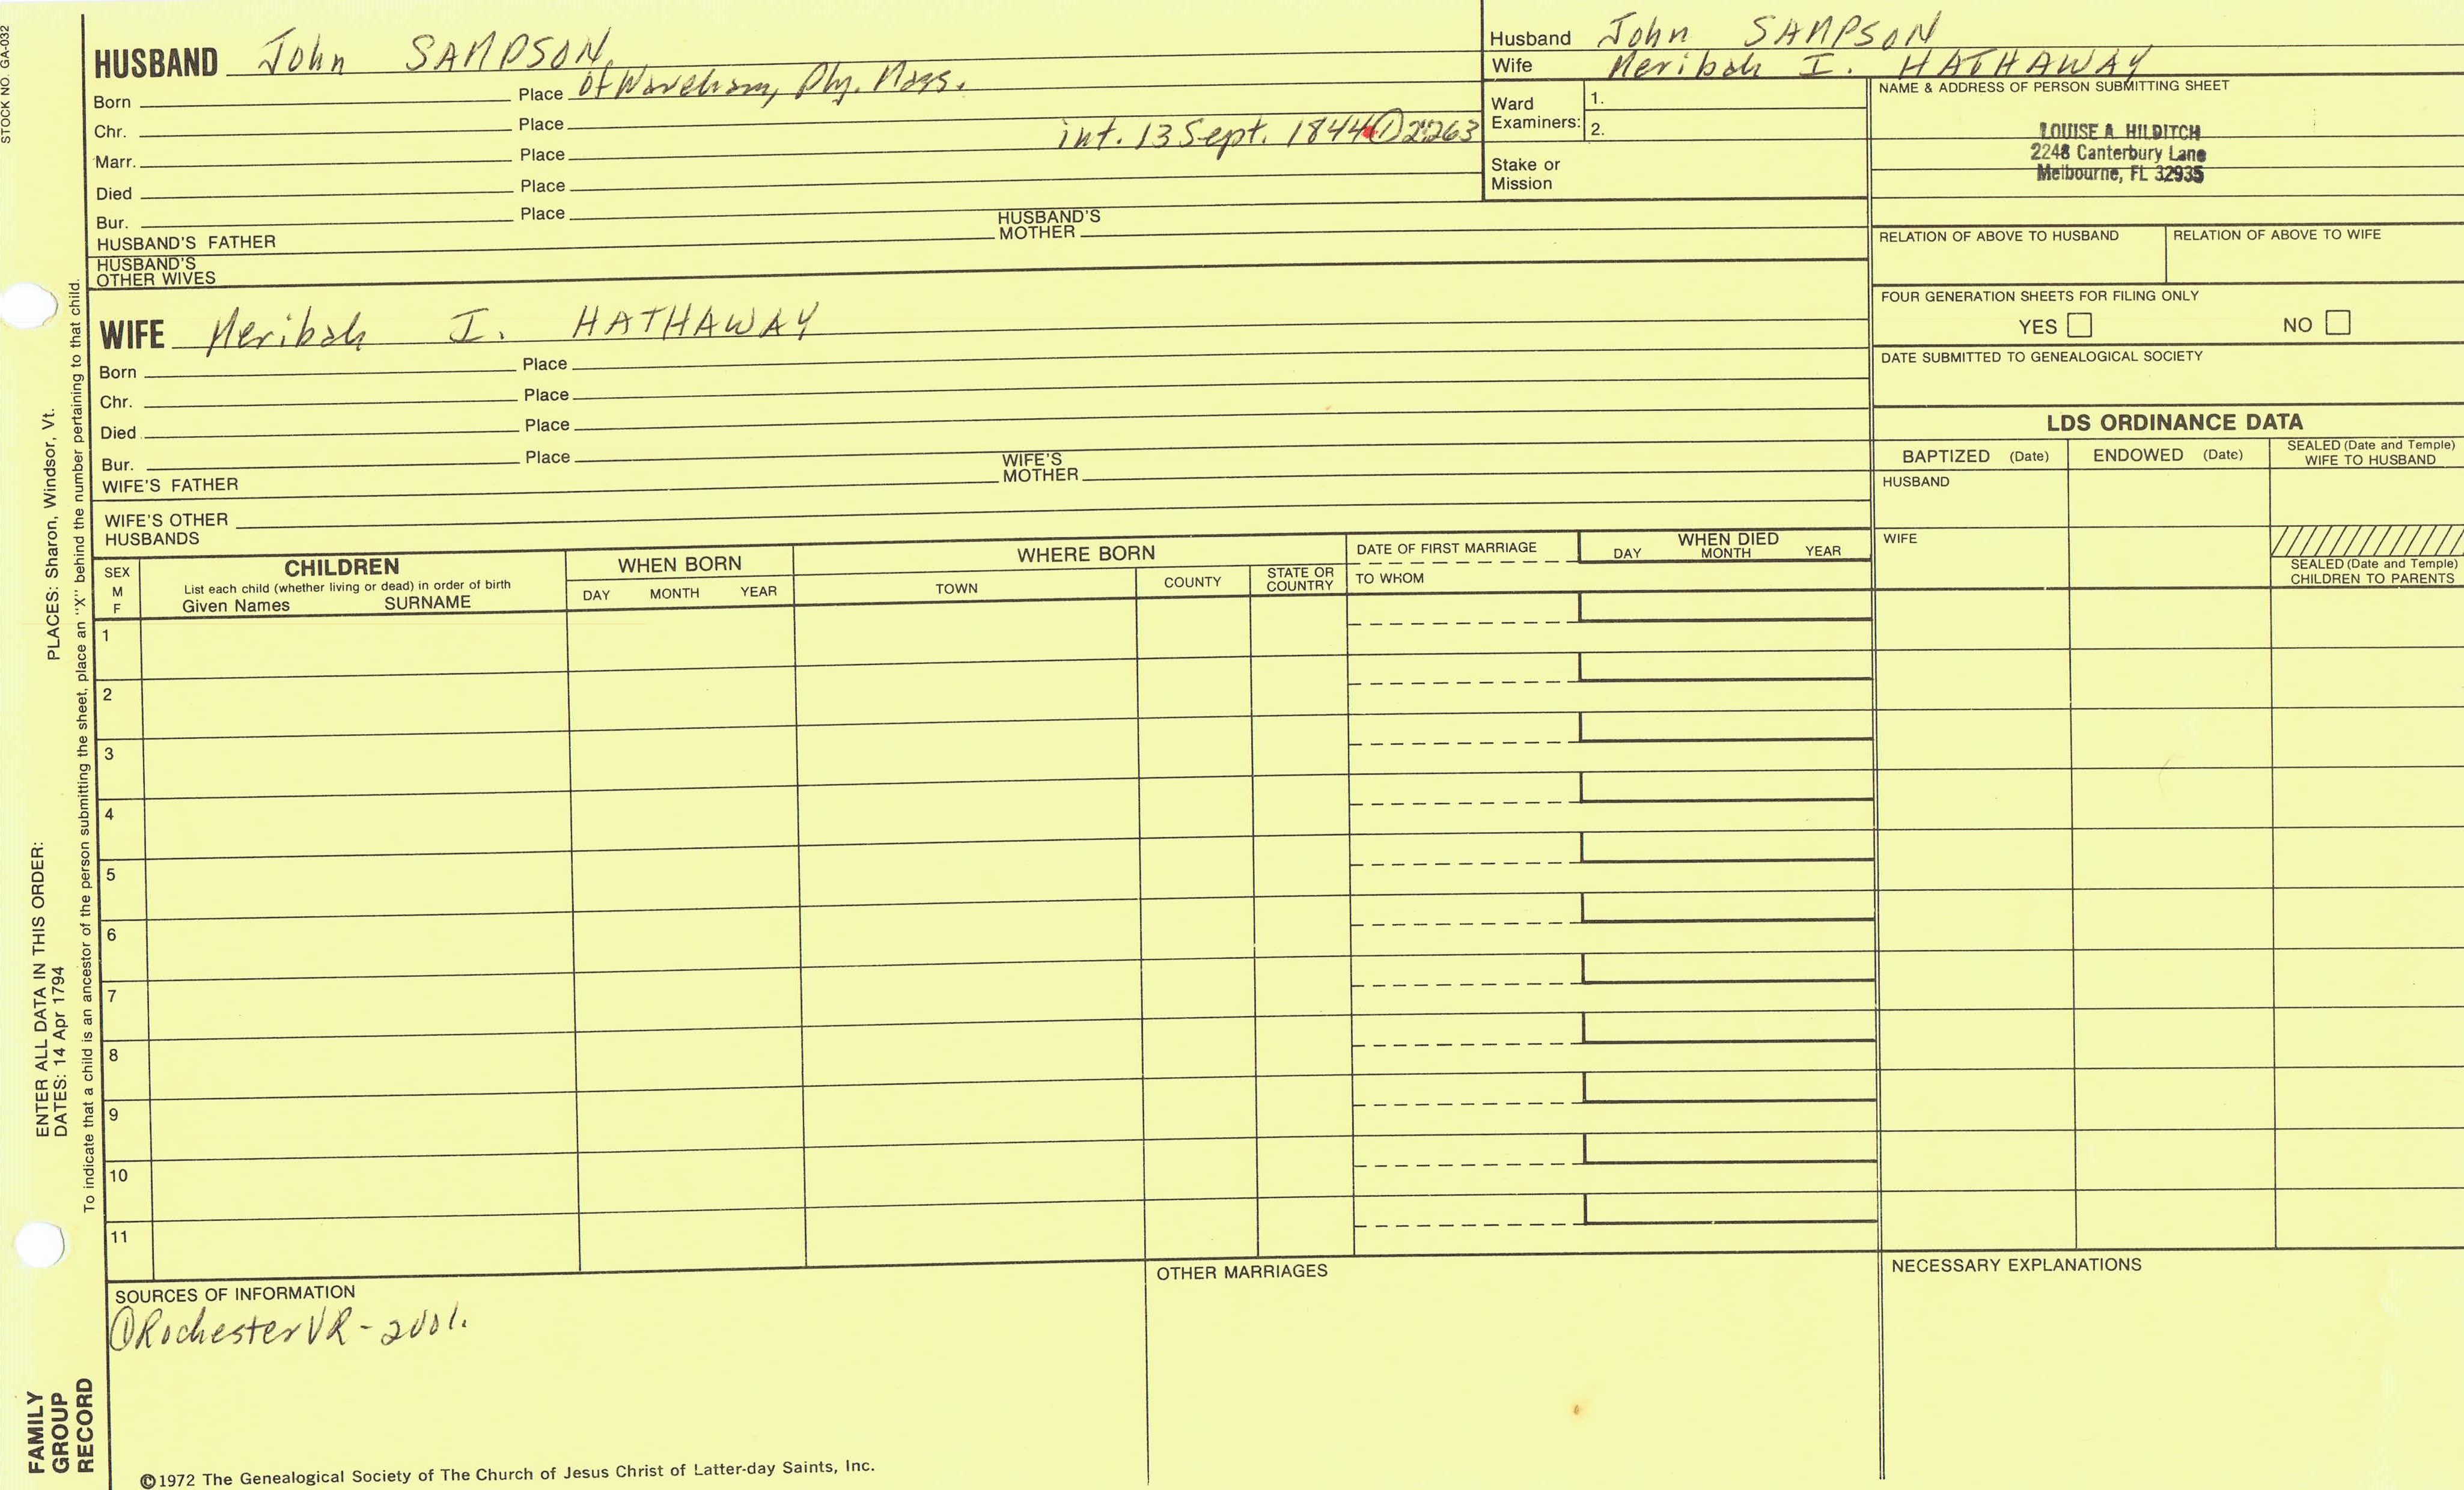 STOCK NO. GA-032
HUSBAND John SAMPSON
Husband John SAMPSON
Wife Meribah I. HATHAWAY
Born Place of Wareham, Ply. Mass.
Chr. Place
Marr. Place int. 13 Sept. 1844 ① 2:263
Died Place
Bur. Place
HUSBAND'S FATHER HUSBAND'S MOTHER
HUSBAND'S OTHER WIVES
Ward Examiners: 1.
2.
Stake or Mission
NAME & ADDRESS OF PERSON SUBMITTING SHEET
LOUISE A. HILDITCH
2248 Canterbury Lane
Melbourne, FL 32935
RELATION OF ABOVE TO HUSBAND RELATION OF ABOVE TO WIFE
FOUR GENERATION SHEETS FOR FILING ONLY
YES NO
DATE SUBMITTED TO GENEALOGICAL SOCIETY
WIFE Meribah I. HATHAWAY
Born Place
Chr. Place
Died Place
Bur. Place
WIFE'S FATHER WIFE'S MOTHER
WIFE'S OTHER HUSBANDS
LDS ORDINANCE DATA
BAPTIZED (Date) ENDOWED (Date) SEALED (Date and Temple) WIFE TO HUSBAND
HUSBAND
WIFE
SEALED (Date and Temple) CHILDREN TO PARENTS
SEX M F
CHILDREN
List each child (whether living or dead) in order of birth
Given Names SURNAME
WHEN BORN
DAY MONTH YEAR
WHERE BORN
TOWN COUNTY STATE OR COUNTRY
DATE OF FIRST MARRIAGE
TO WHOM
WHEN DIED
DAY MONTH YEAR
1
2
3
4
5
6
7
8
9
10
11
SOURCES OF INFORMATION
① Rochester VR - 2001.
OTHER MARRIAGES
NECESSARY EXPLANATIONS
©1972 The Genealogical Society of The Church of Jesus Christ of Latter-day Saints, Inc.
FAMILY
GROUP
RECORD
ENTER ALL DATA IN THIS ORDER:
DATES: 14 Apr 1794
PLACES: Sharon, Windsor, Vt.
To indicate that a child is an ancestor of the person submitting the sheet, place an "X" behind the number pertaining to that child.